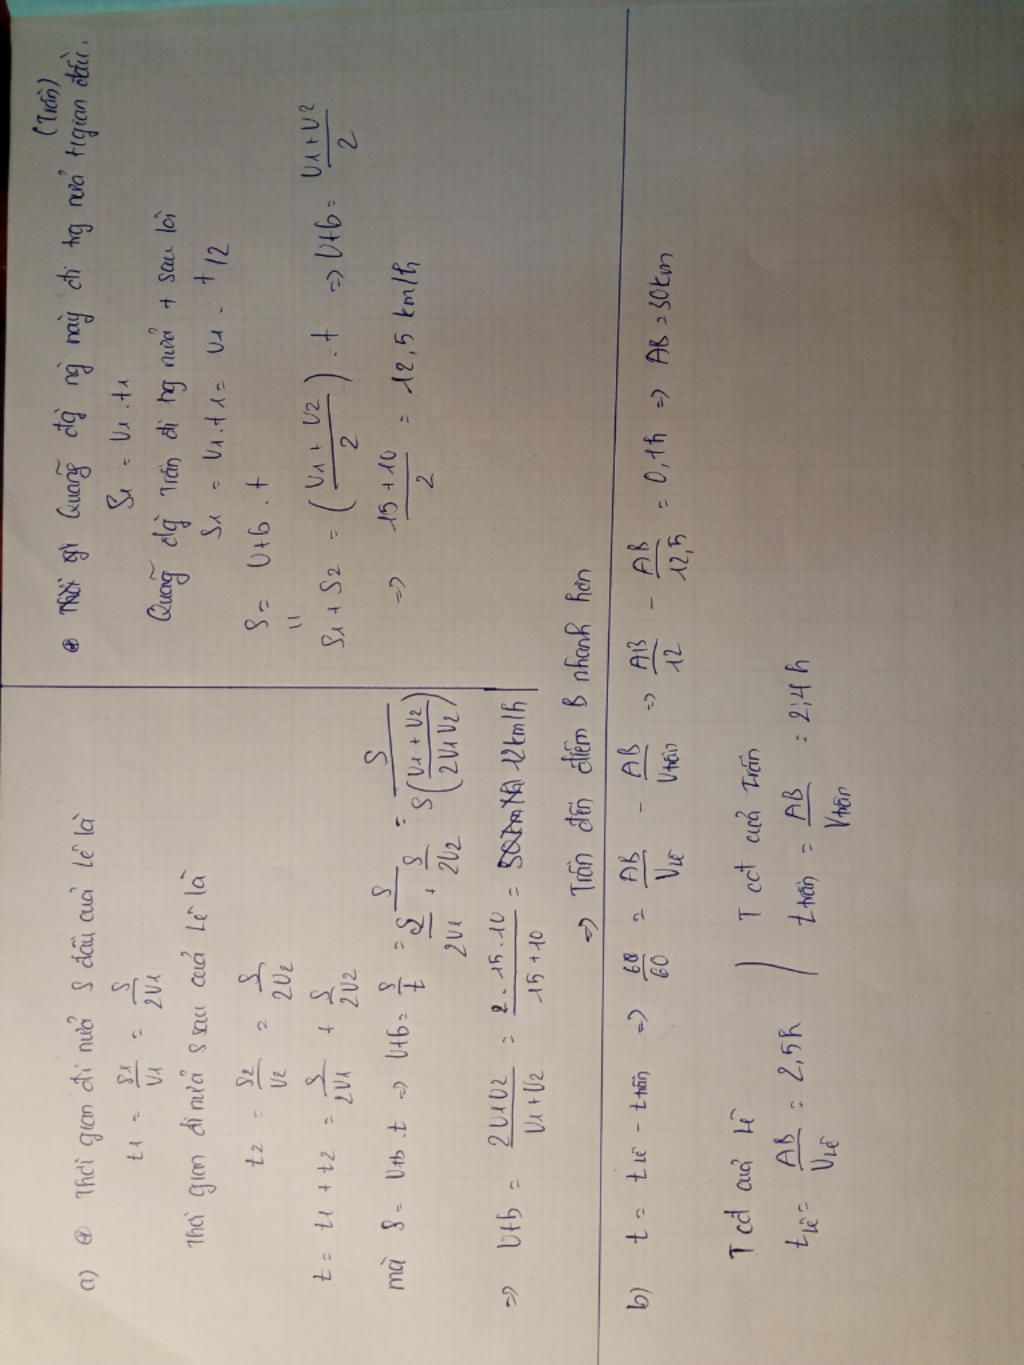 a) ⊕ Thời gian đi nửa S đầu của Lê là
t1 = S1/V1 = S/2V1
Thời gian đi nửa S sau của Lê là
t2 = S2/V2 = S/2V2
t = t1 + t2 = S/2V1 + S/2V2
mà S = Vtb.t => Vtb = S/t = S/(S/2V1 + S/2V2) = S/(S((V1 + V2)/(2V1V2)))
=> Vtb = 2V1V2/(V1 + V2) = 2.15.10/(15 + 10) = 12km/h
⊕ Thời gi Quãng đg ng này đi tg nửa tgian đầu.
(Trần)
S1 = V1.t1
Quãng đg Trần đi tg nửa t sau là
S1 = V1.t1 = V1.t/2
S = Vtb.t
"
S1 + S2 = ((V1 + V2)/2).t => Vtb = (V1+V2)/2
=> (15+10)/2 = 12,5 km/h
=> Trần đến điểm B nhanh hơn
b) t = tLê - ttrần => /60 = AB/VLê - AB/Vtrần => AB/12 - AB/12,5 = 0,1h => AB = 30km
T cđ của Lê
tLê = AB/VLê = 2,5h
T cđ của Trần
ttrần = AB/Vtrần = 2,4h